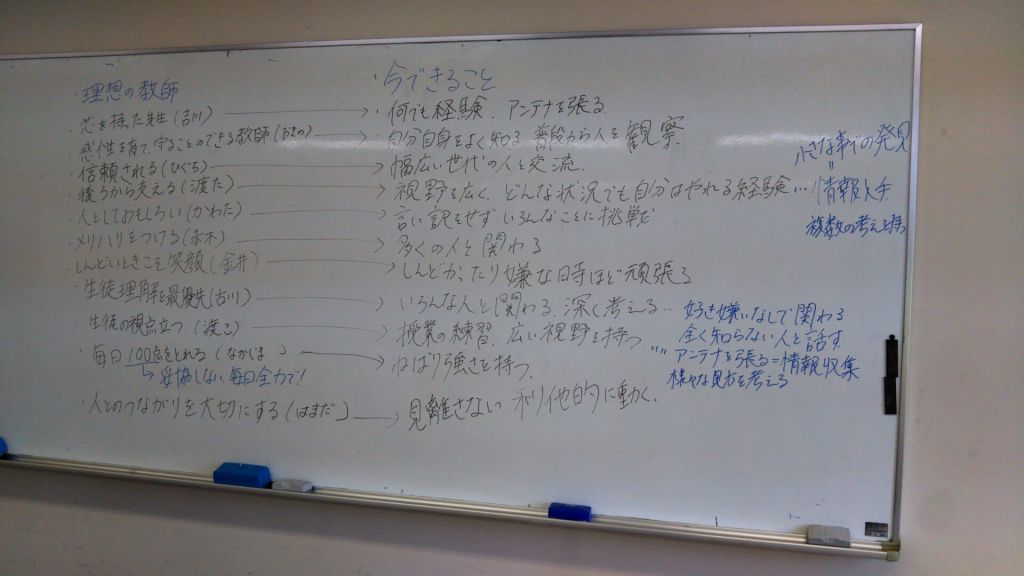 ・理想の教師
・今できること
・芯を持った先生(吉川) → ・何でも経験、アンテナを張る
・感性を育て、守ることのできる教師(おきの) → ・自分自身をよく知る 普段から人を観察
・信頼される(ひぐち) → ・幅広い世代の人と交流.
・後ろから支える(渡た) → ・視野を広く、どんな状況でも自分はやれる経験…情報入手
小さな事の発見
〃
・人としておもしろい(かわた) → ・言い訳をせずいろんなことに挑戦
複数の考えを持つ
・メリハリをつける(赤木) → ・多くの人と関わる
・しんどいときこそ笑顔(金井) → ・しんどかったり嫌な時ほど頑張る
・生徒理解を最優先(古川) → ・いろんな人と関わる、深く考える…好き嫌いなしで関わる
全く知らない人と話す
・生徒の視点立つ(渡こ) → ・授業の練習、広い視野を持つ
〃〃アンテナを張る=情報収集
様々な見方を考える
・毎日100点をとれる(なかじま) → ・ねばり強さを持つ、
↳妥協しない、毎日全力で!
・人とのつながりを大切にする(はまだ) → ・見離さない、利他的に動く、